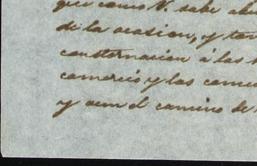 que como V. sabe
de la ocasion, y
consternacion á las
comercio y las
y aun el camino de